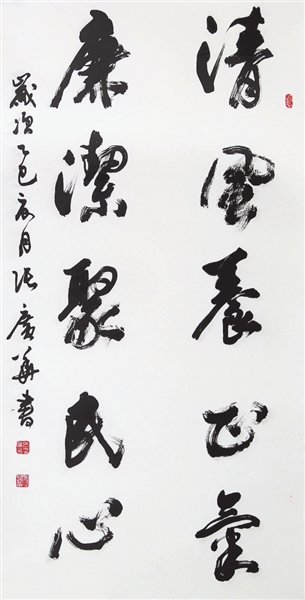 清風養正氣
廉潔聚民心
歲次乙巳夏月張廣華書